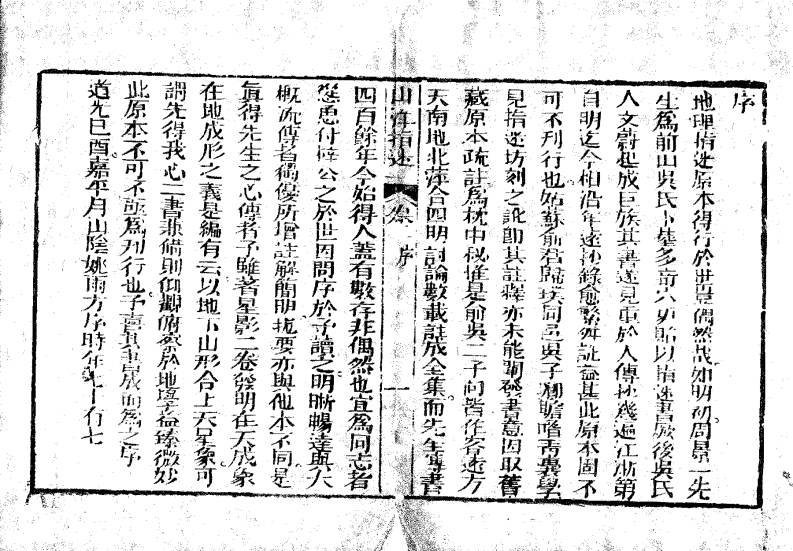 序
地理指迷原本得行於世豈偶然哉如明初周景一先
生為前山吳氏卜葬多奇穴更貽以指迷書厥後吳氏
人文蔚起成巨族其書遂見重於人傳抄幾遍江浙第
自明迄今相沿年遠抄錄愈繁舛訛益甚此原本固不
可不刊行也姑蘇俞君歸璞同邑吳子卿瞻嗜青囊學
見指迷坊刻之訛即其註釋亦未能闡發書意因取舊
藏原本疏註為枕中秘惟是俞吳二子向皆作客遠方
天南地北萍合四明討論數載註成全集而先生專書
山洋指迷 原序 一
四百餘年今始得人蓋有數存非偶然也宜為同志者
慫恿付梓公之於世因問序於予讀之明晰暢達與夫
概流傳者獨優所增註解簡明扼要亦與他本不同是
真得先生之心傳者予雖著星影二卷發明在天成象
在地成形之義是編有云以地下山形合上天星象可
謂先得我心二書兼備則仰觀俯察於地學益臻微妙
此原本不可不亟為刊行也予喜其書成而為之序
道光己酉嘉平月山陰姚雨方序時年七十有七